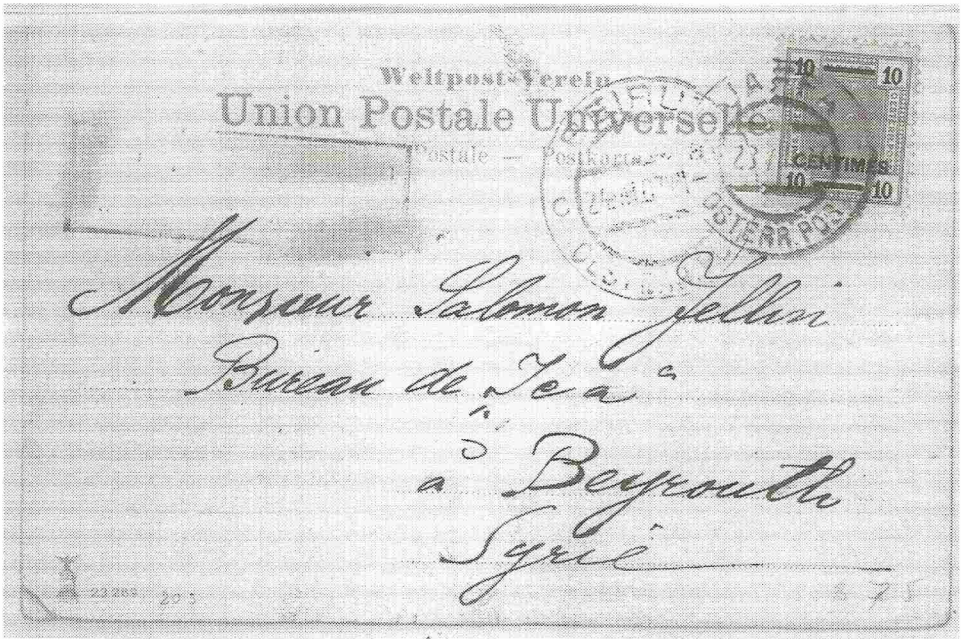 Weltpost-Verein
Union Postale Universelle
Postale — Postkarte
10 10
CENTIMES
10 10
BEIRUT
OSTERR. POST
Monsieur Salomon Jellin
Bureau de "Ica"
à Beyrouth
Syrie
22263 20 5
875